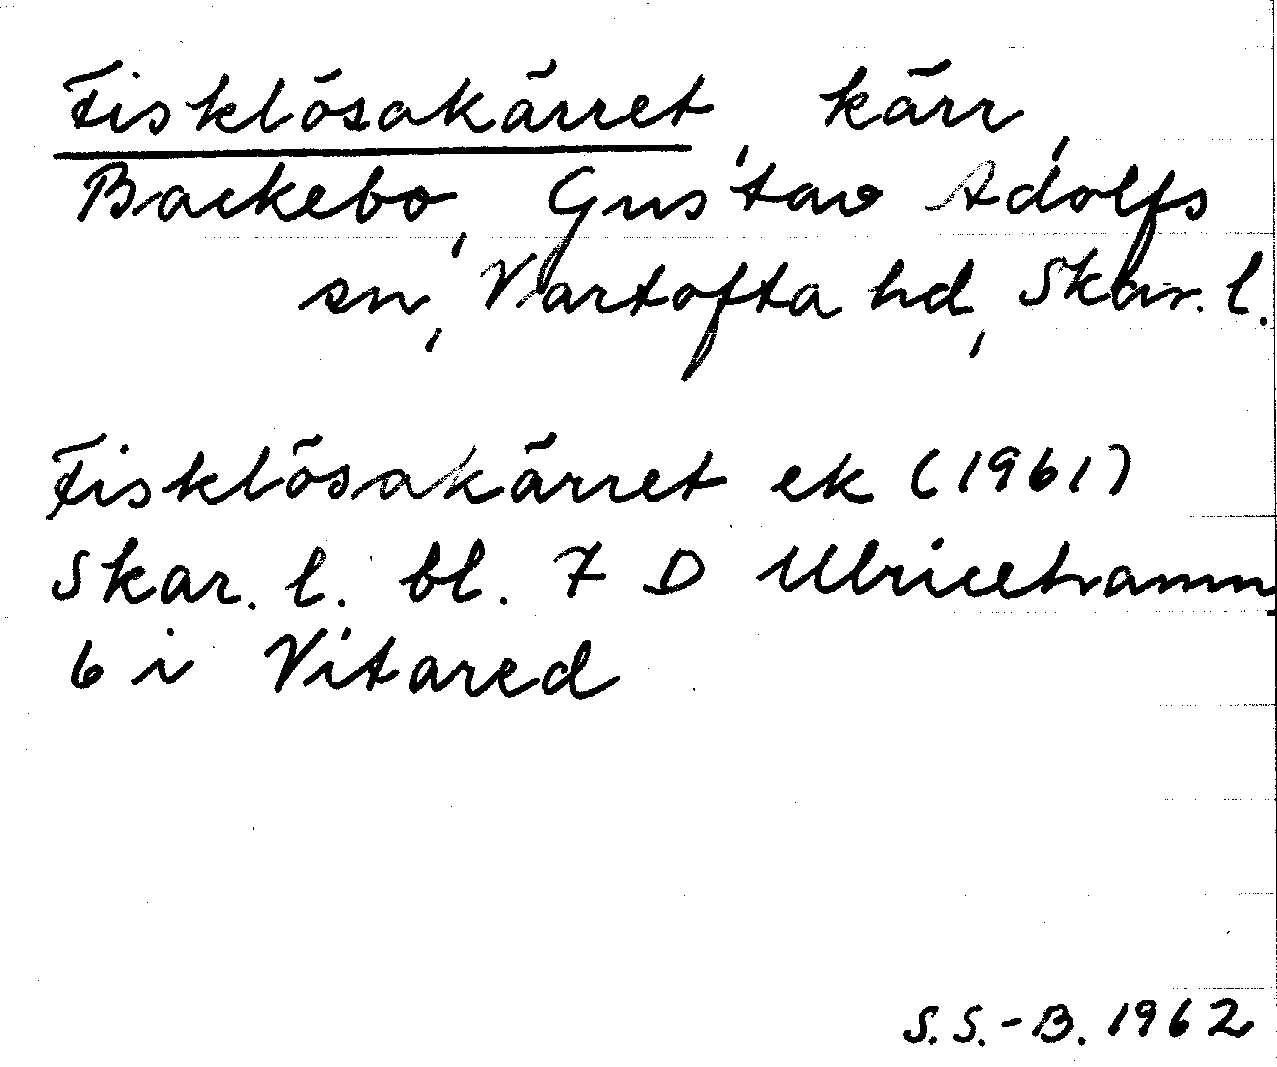 Fisklösakärret, kärr,
Backebo, Gustav Adolfs
sn, Vartofta hd, Skar. l.
Fisklösakärret ek (1961)
Skar. l. bl. 7 D Ulricehamn
6 i Vitared
S.S.-B. 1962